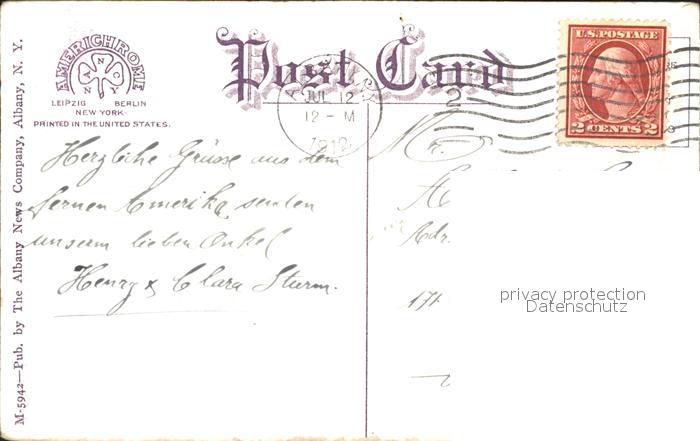 AMERICHROME
ANCNY
LEIPZIG BERLIN
NEW YORK
PRINTED IN THE UNITED STATES.
Post Card
JUL 12
12-M
1912
U.S. POSTAGE
2 CENTS 2
M-5942—Pub. by The Albany News Company, Albany, N. Y.
Herzliche Grüsse aus dem
fernen Amerika senden
unserm lieben Onkel
Henry & Clara Sturm.
Mr.
Adr.
17
privacy protection
Datenschutz